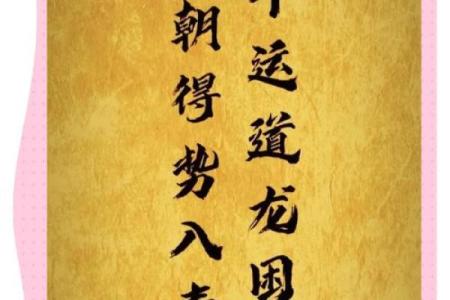 运道龙困
朝得势入